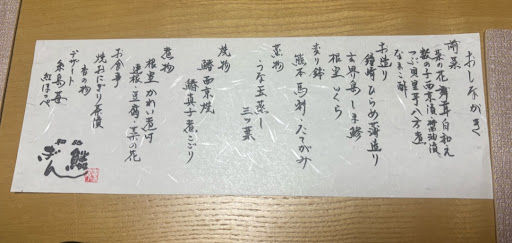 おしながき
前菜
菜の花 舞茸白和え
数の子西京漬 醤油漬
つぶ貝里芋八方煮
なまこ酢
お造り
鐘崎ひらめ薄造り
玄界島しま鯵
根室いくら
変り鉢
熊本馬刺したてがみ
蒸物
うな玉蒸し
三ツ葉
焼物
鰆西京焼
鱈真子煮こごり
煮物
根室かれい煮付
蓮根・豆腐・菜の花
お食事
焼おにぎり茶漬
香の物
デザート
糸島苺
紅ほっぺ
鮨
ぎん